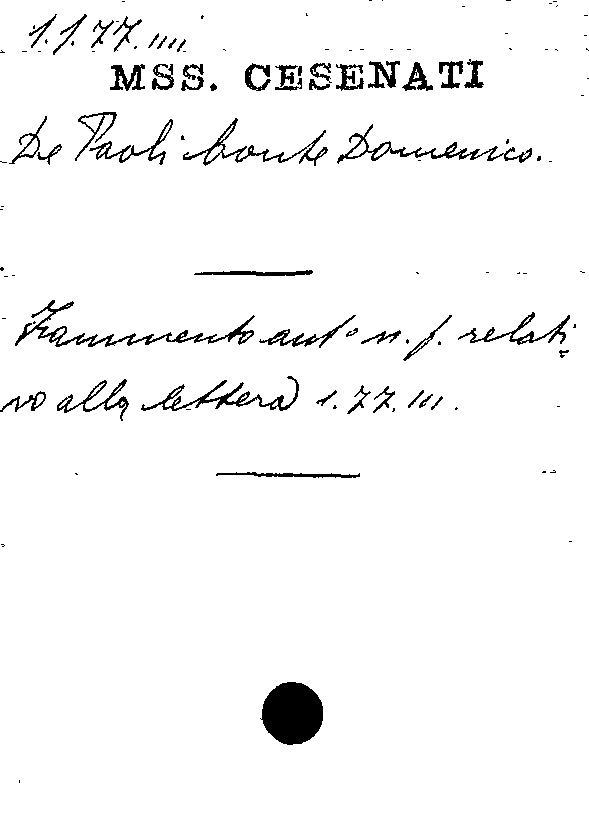 1.1.77.IIII
MSS. CESENATI
De Paoli Conte Domenico.
Frammento aut° n. f. relati-
vo alla lettera 1.77.III.